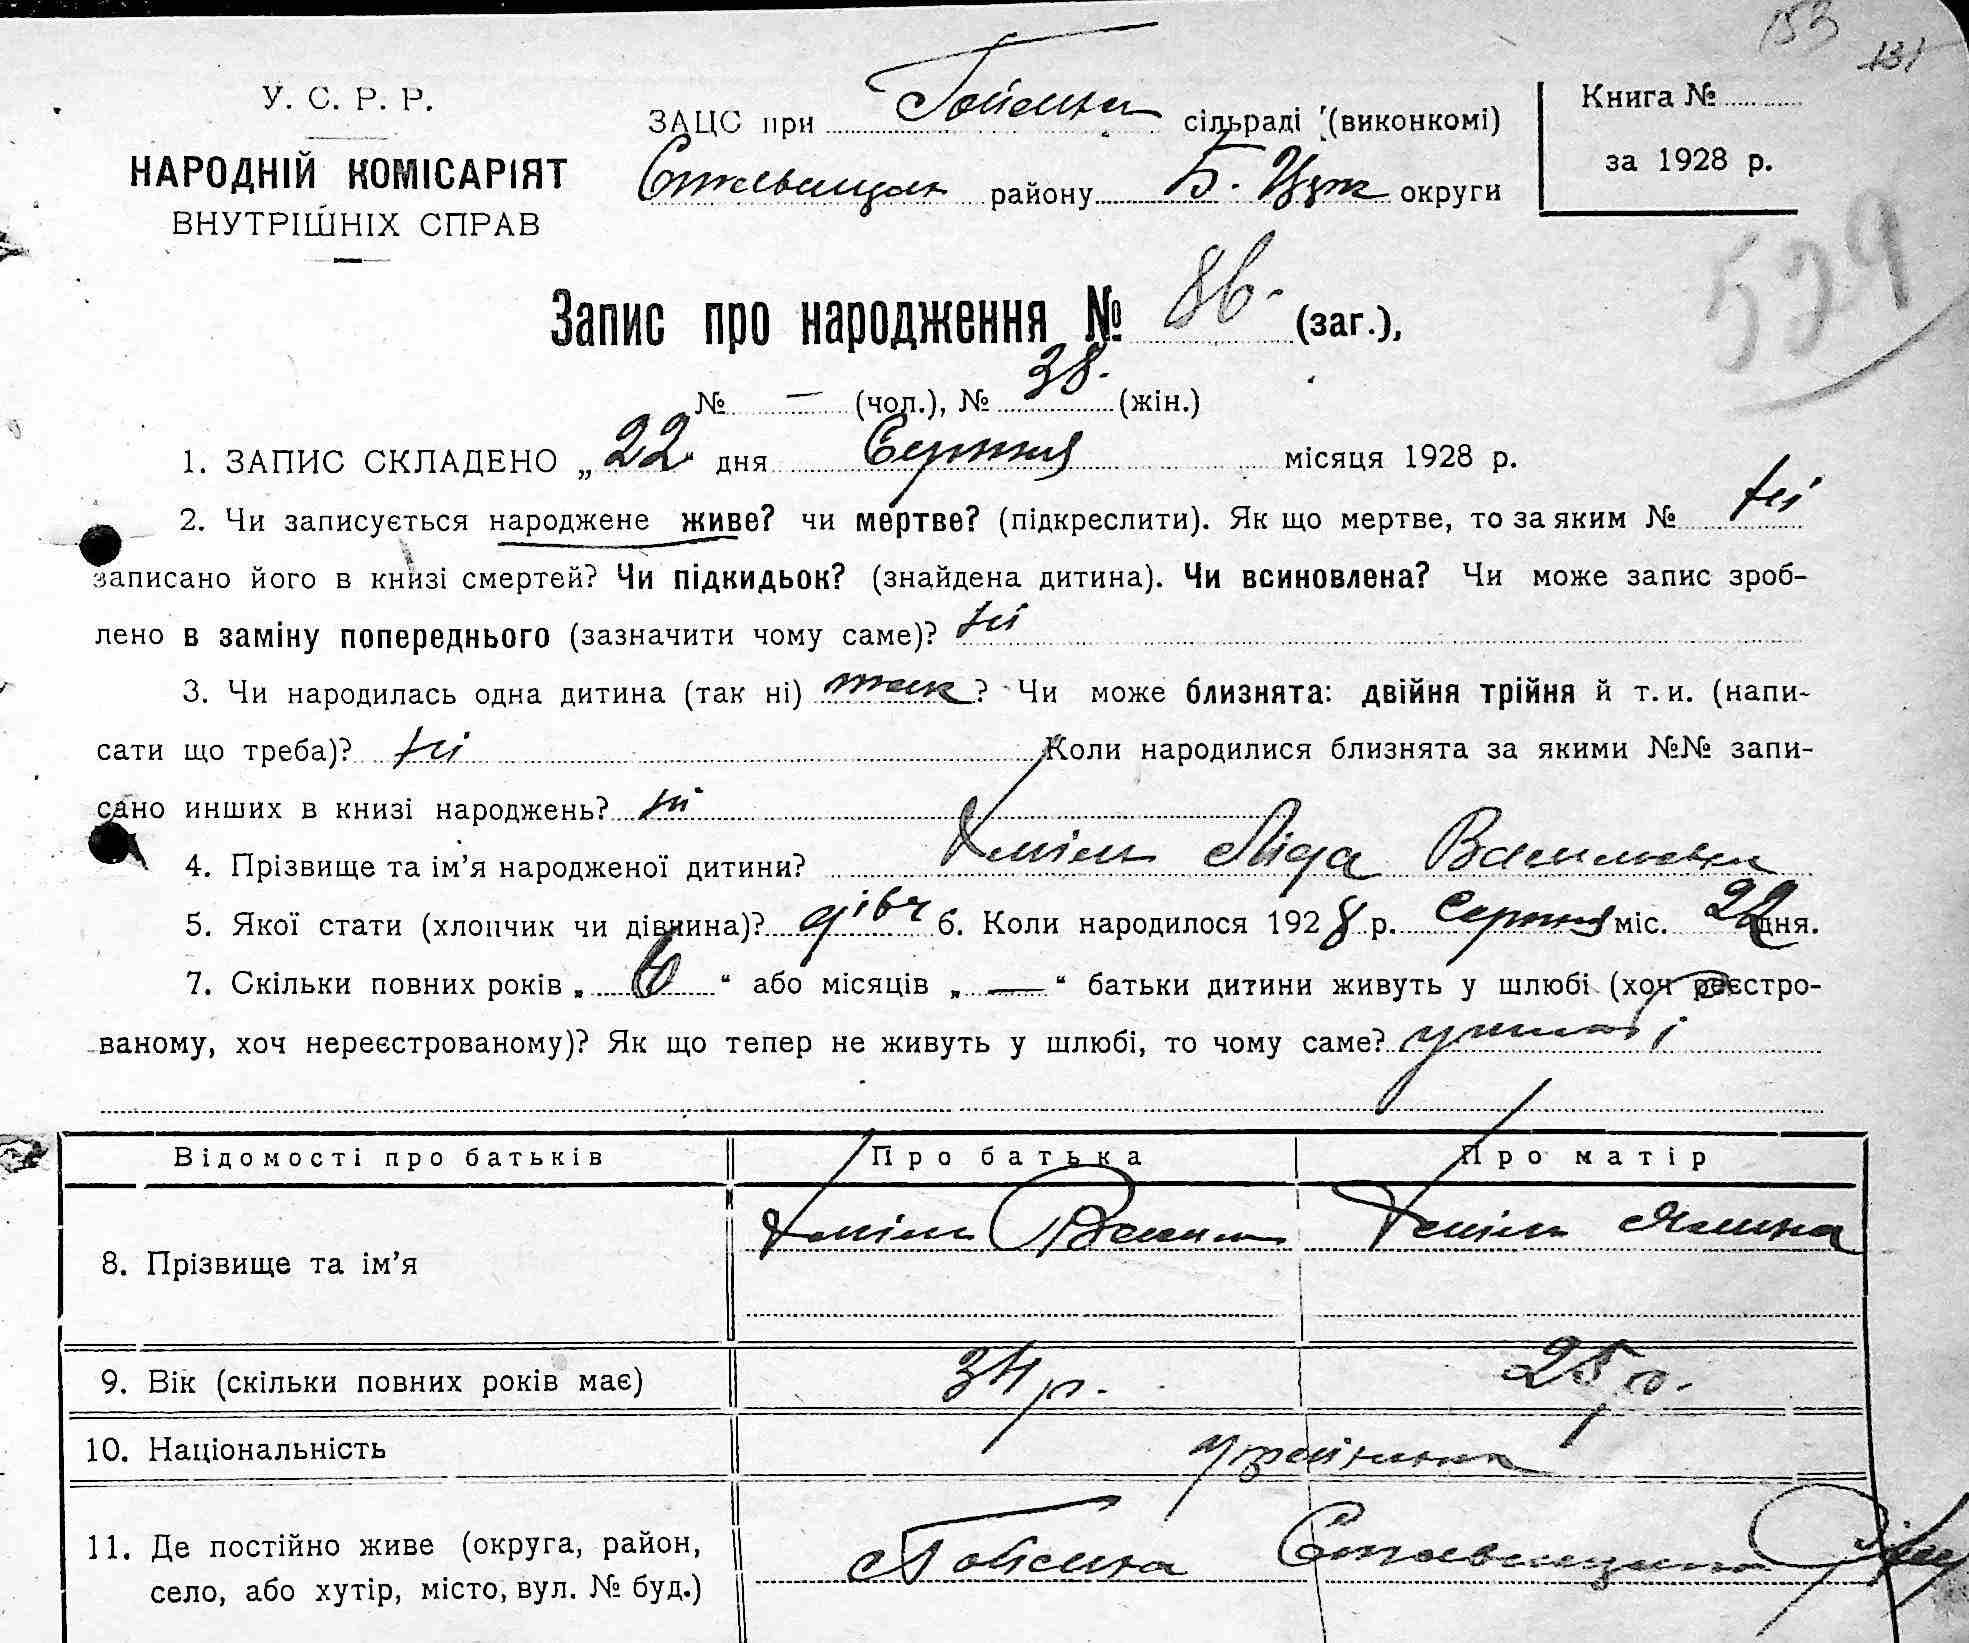 153
131
У. С. Р. Р.
НАРОДНІЙ КОМІСАРІЯТ
ВНУТРІШНІХ СПРАВ
ЗАЦС при сільраді (виконкомі)
району Б. Церк округи
Книга №
за 1928 р.
529
Запис про народження № 86. (заг.),
№ — (чол.), № 38. (жін.)
1. ЗАПИС СКЛАДЕНО „22" дня Серпня місяця 1928 р.
2. Чи записується народжене живе? чи мертве? (підкреслити). Як що мертве, то за яким № ні
записано його в книзі смертей? Чи підкидьок? (знайдена дитина). Чи всиновлена? Чи може запис зроб-
лено в заміну попереднього (зазначити чому саме)? ні
3. Чи народилась одна дитина (так ні) так? Чи може близнята: двійня трійня й т. и. (напи-
сати що треба)? ні Коли народилися близнята за якими №№ запи-
сано инших в книзі народжень? ні
4. Прізвище та ім'я народженої дитини? Ліда Василівна
5. Якої стати (хлопчик чи дівчина)? дівч 6. Коли народилося 1928 р. Серпня міс. 22 дня.
7. Скільки повних років „ 6 " або місяців „ — " батьки дитини живуть у шлюбі (хоч реєстро-
ваному, хоч нереєстрованому)? Як що тепер не живуть у шлюбі, то чому саме? у шлюбі
Відомості про батьків Про батька Про матір
8. Прізвище та ім'я
9. Вік (скільки повних років має) 34 р. 25 р.
10. Національність українська
11. Де постійно живе (округа, район,
село, або хутір, місто, вул. № буд.)